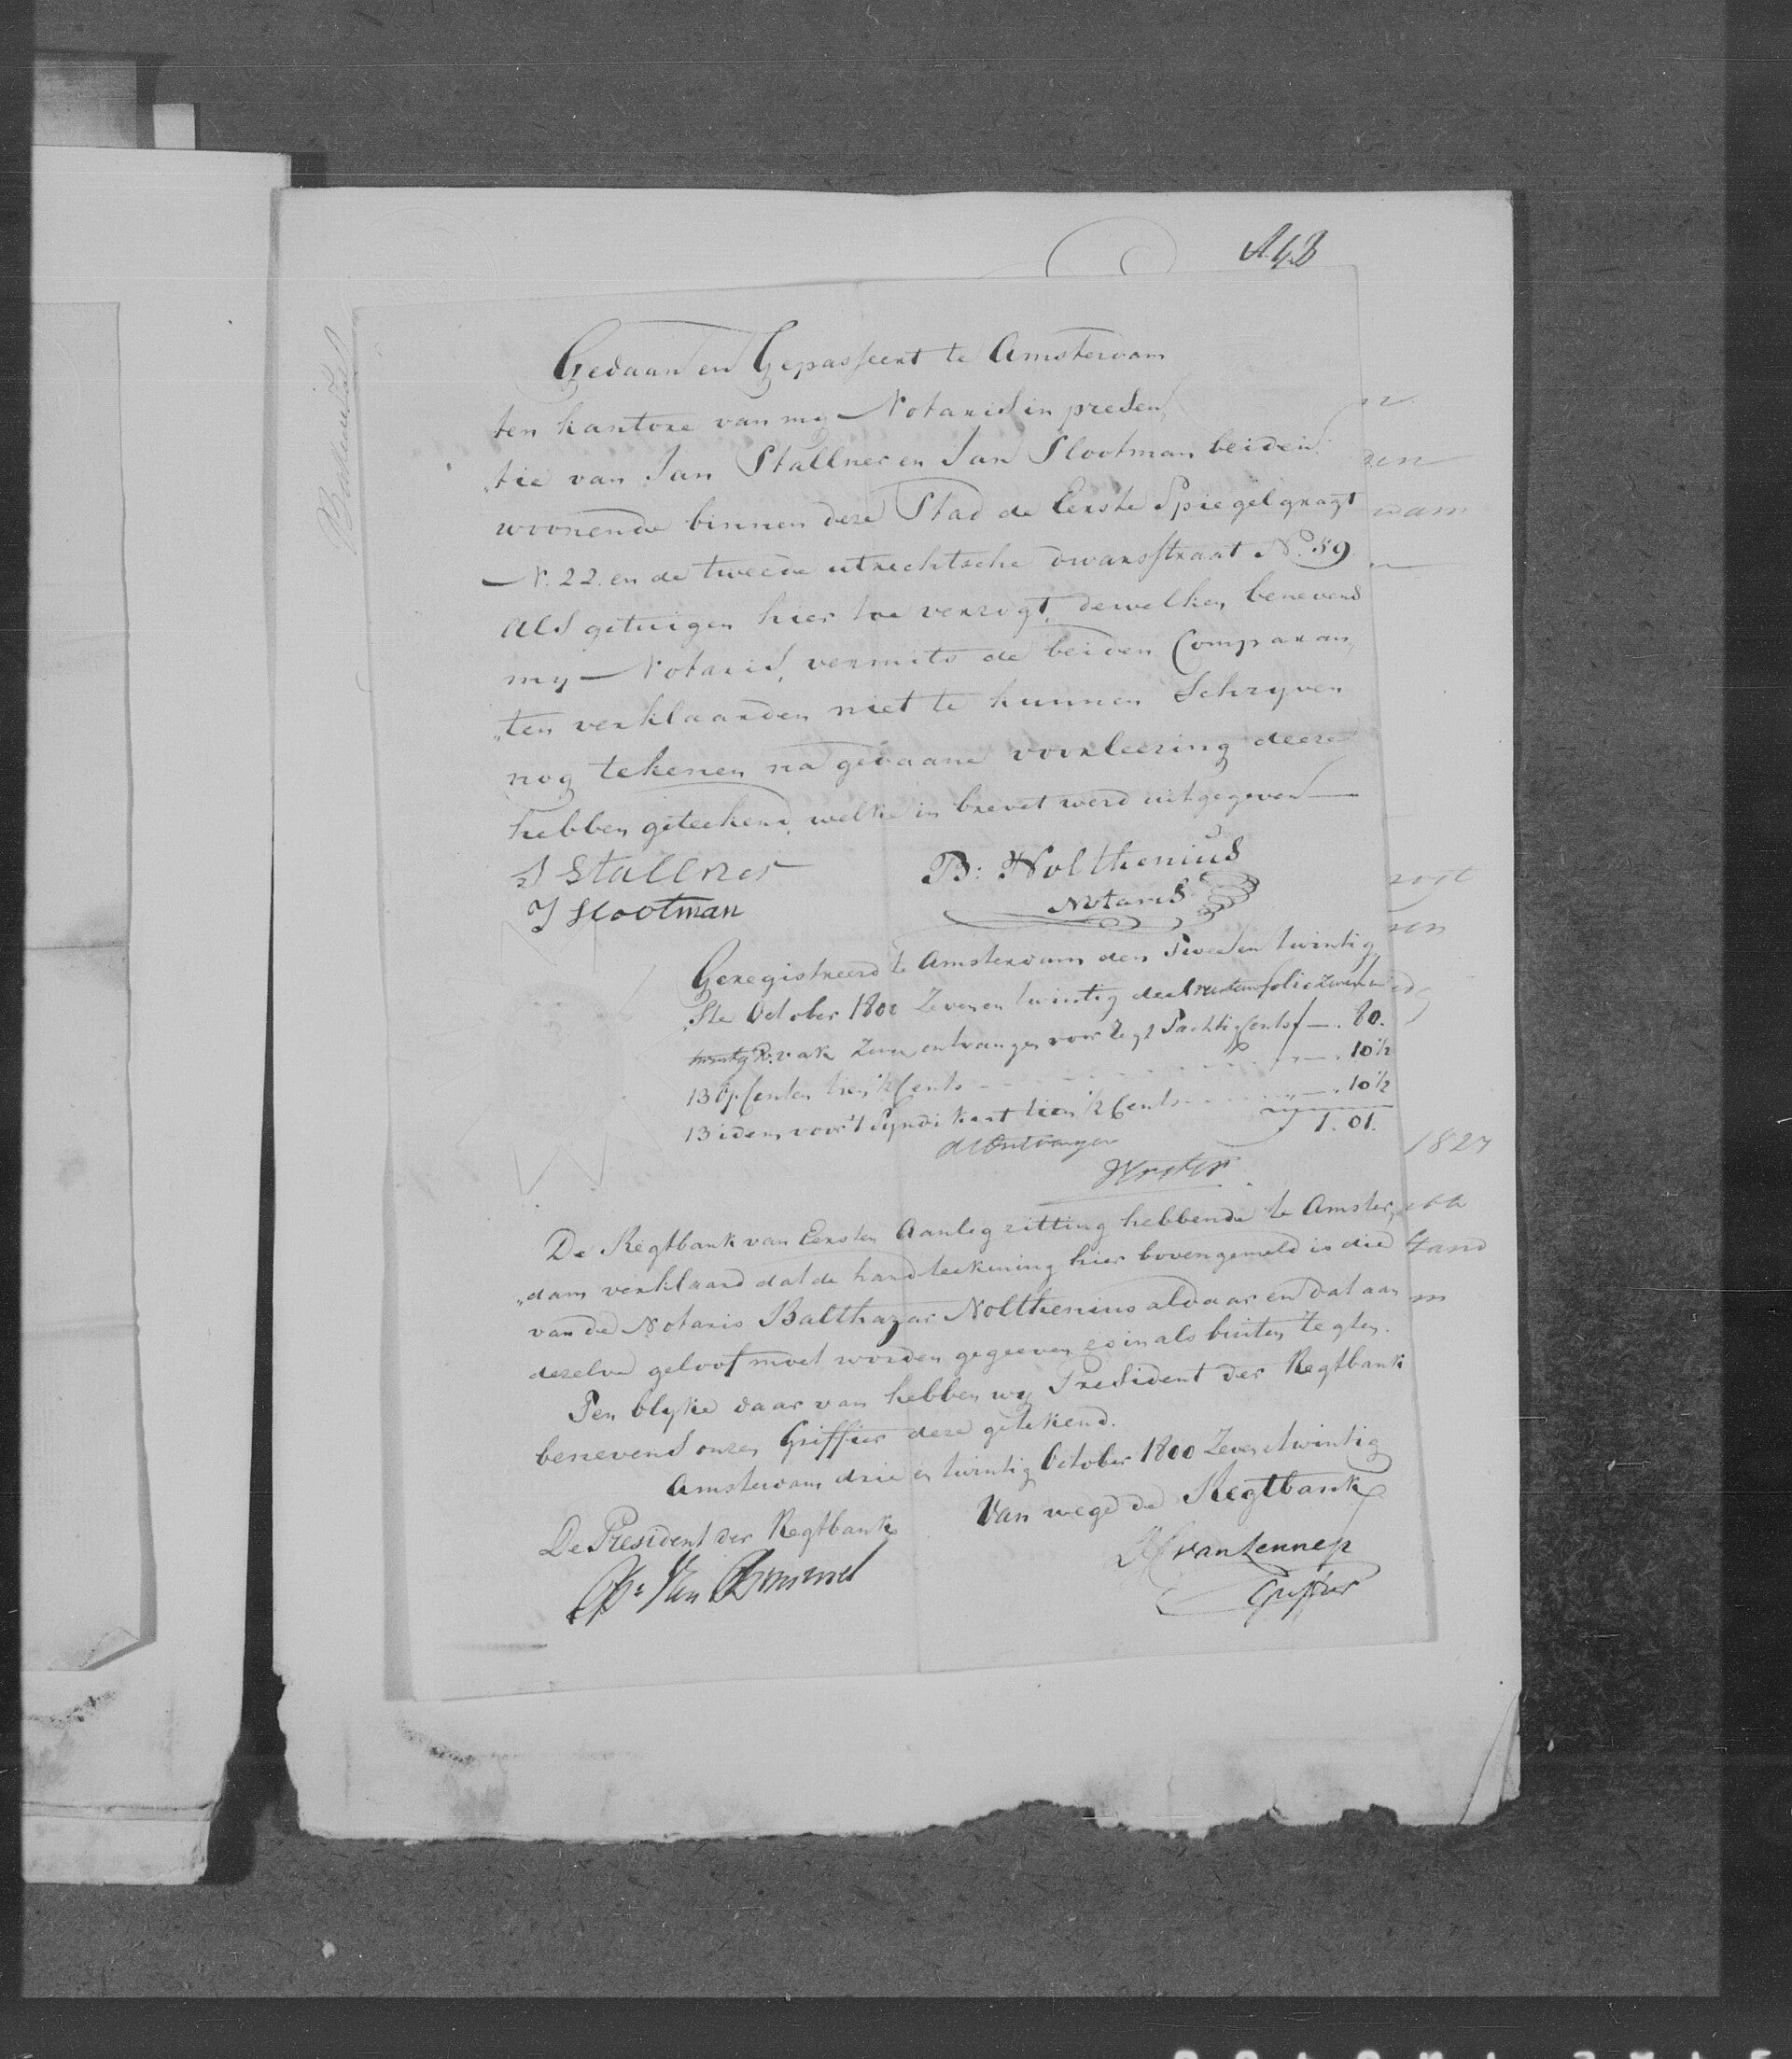 Gedaan en Gepasseert te Amsterdam
ten kantore van my Notaris in presen
„tie van Jan Stallner en Jan Slootman beiden
woonende binnen deze Stad de Eerste Spiegelgragt
N. 22. en de tweede utrechtsche dwarsstraat N.o 59
als getuigen hier toe verzogt, dewelken benevens
my Notaris, vermits de beiden Comparan
„ten verklaarden niet te kunnen Schryven
nog tekenen na gedaane voorleezing deeze
hebben geteekend, welke in brevet werd uitgegeven
J Stallner
J Slootman
B: Nolthenius
Notaris
Geregistreerd te Amsterdam den Tweeen twintig
„ste October 1800 Zeven en twintig deel folio
R.o vak Zeven ontvangen voor Regt Tachtig Cents f — . 80.
13 Op Centen tien ½ Cents „ — . 10½
13 idem voor 't Syndikaat tien ½ Cents „ — . 10½
f 1. 01.
d'Ontvanger
De Regtbank van Eersten Aanleg zitting hebbende te Amster
„dam verklaard dat de handteekening hier bovengemeld is die
van de Notaris Balthazar Nolthenius aldaar en dat aan
dezelve geloof moet worden gegeeven zo in als buiten Regten.
Ten blyke daar van hebben wy President der Regtbank
benevens onzen Griffier deze getekend.
Amsterdam drie en twintig October 1800 Zeven twintig
De President der Regtbank
Van wege de Regtbank
van Lennep
Griffier
n
dam
ren
1827
stand
m